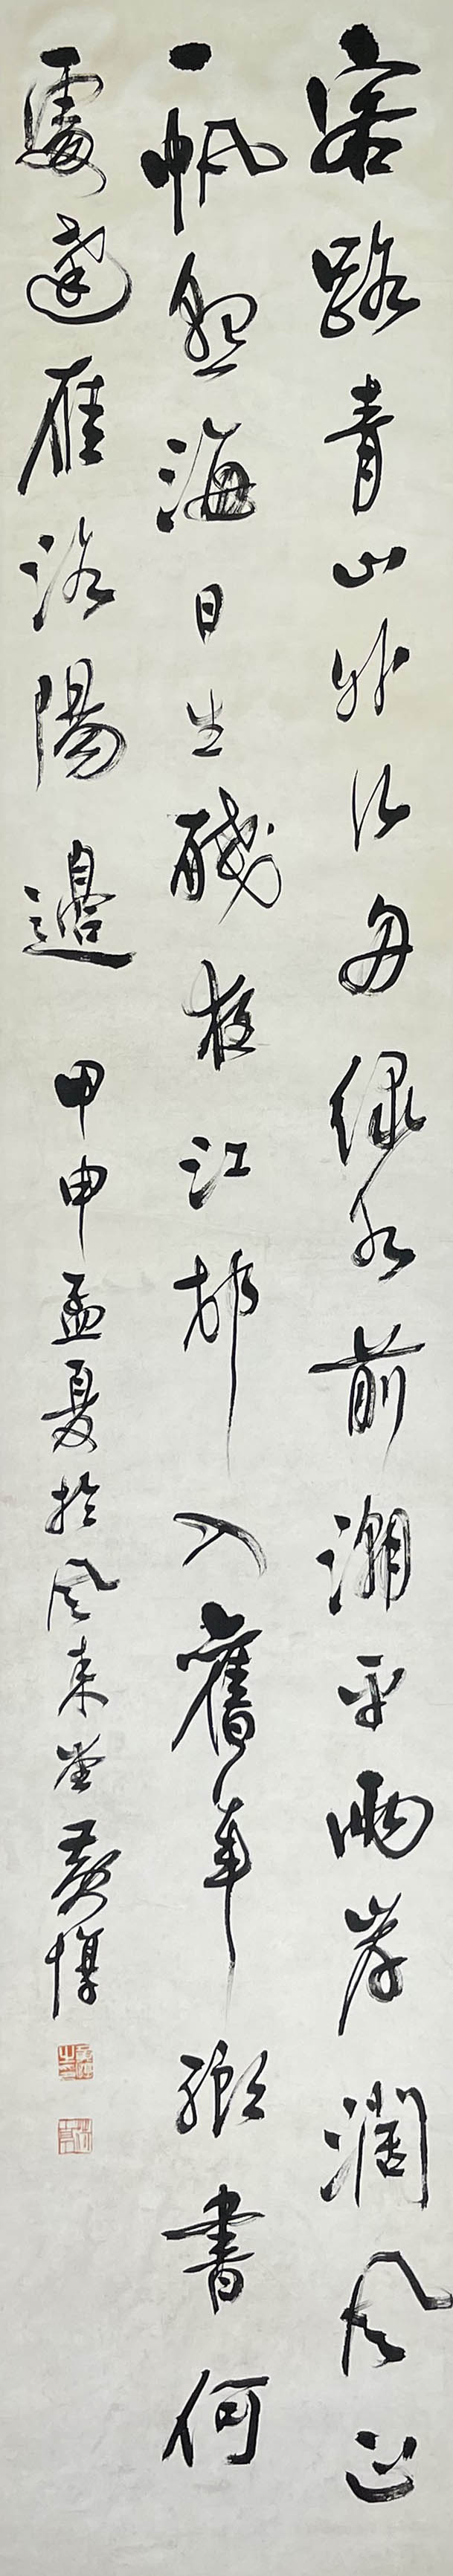 客路青山外行舟綠水前潮平兩岸濶風正
一帆懸海日生殘夜江邨入舊年鄉書何
處達雁洛陽邊 甲申孟夏於風來堂黃惇